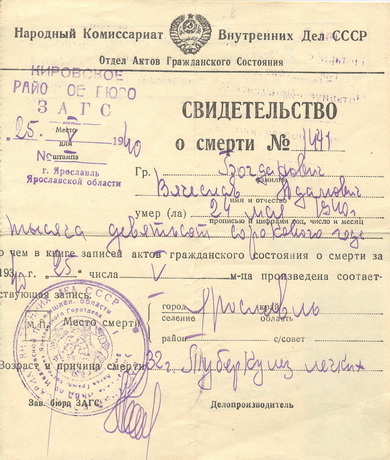 Народный Комиссариат Внутренних Дел СССР
Отдел Актов Гражданского Состояния
КИРОВСКОЕ
РАЙОННОЕ БЮРО
ЗАГС
СВИДЕТЕЛЬСТВО
25 V 1940
Место
или
№ штампа
г. Ярославль
Ярославской области
о смерти №
Гр. Богданович
фамилия
Вячеслав Адамович
имя и отчество
умер (ла) мая 1940 г.
прописью и цифрами год, число и месяц
тысяча девятьсот сорокового года
о чем в книге записей актов гражданского состояния о смерти за
1940 г. 25 числа V м-ца произведена соответ-
ствующая запись.
М. П. Место смерти
город Ярославль край
селение область
район с/совет
Возраст и причина смерти 32 г. Туберкулез легких
Зав. бюро ЗАГС
Делопроизводитель